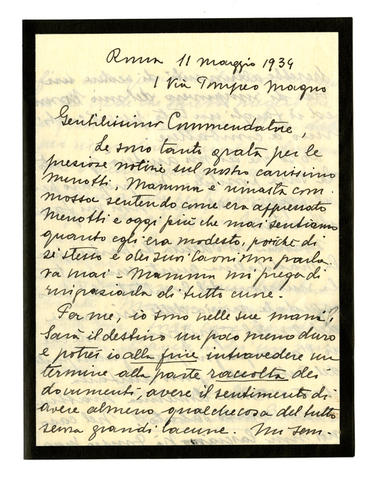 Roma 11 maggio 1934
1 Via Pompeo Magno
Gentilissimo Commendatore,
Le sono tanto grata per le
preziose notizie sul nostro carissimo
Menotti, Mamma è rimasta com-
mossa sentendo come era apprezzato
Menotti e oggi più che mai sentiamo
quanto egli era modesto, poiché di
se stesso e dei suoi lavori non parla-
va mai. Mamma mi prega di
ringraziarla di tutto cuore.
Per me, io sono nelle sue mani!
Sarà il destino un poco meno duro
e potrei io alla fine intravedere un
termine alla parte raccolta dei
documenti, avere il sentimento di
avere almeno qualche cosa del tutto
senza grandi lacune. Mi sem-